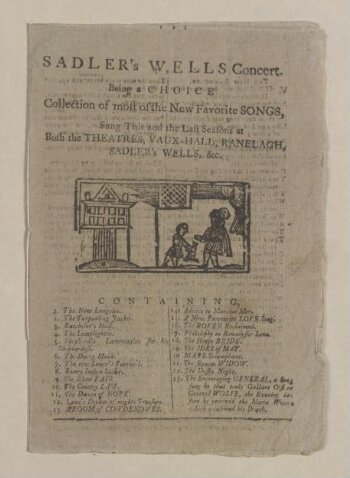 SADLER's WELLS Concert.
Being a CHOICE
Collection of most of the New Favorite SONGS,
Sung This and the Last Seasons at
Both the THEATRES, VAUX-HALL, RANELAGH,
SADLER's WELLS, &c.
CONTAINING,
1. The New
2. The Tarpawling Jacket.
3. Batchelor's Hall.
4. The Lamplighter.
5. Shepherd's Lamentation for his
Shepherdess.
6. The Dairy Maid.
7. The true Lover's Farewell.
8. Every Inch a Sailor.
9. The Blind
10. The County
11. The Dance of HOPE
12. Love's Dream of mighty Treasure.
13. BROOM of COWDENOWES.
14. Advice to Married Men.
15. A New Favourite LOVE Song.
16. The ROVER Reclaimed.
17. Philosophy no Remedy for Love.
18. The Happy BRIDE.
19. The IDES of MAY.
20. MARS Triumphant.
21. The WIDOW.
22. The Dusky Night.
23. The Encouraging GENERAL, a Song
sung by that truly Gallant Officer
General WOLFE, the Evening be-
fore he received the Wound
which occasioned his Death.